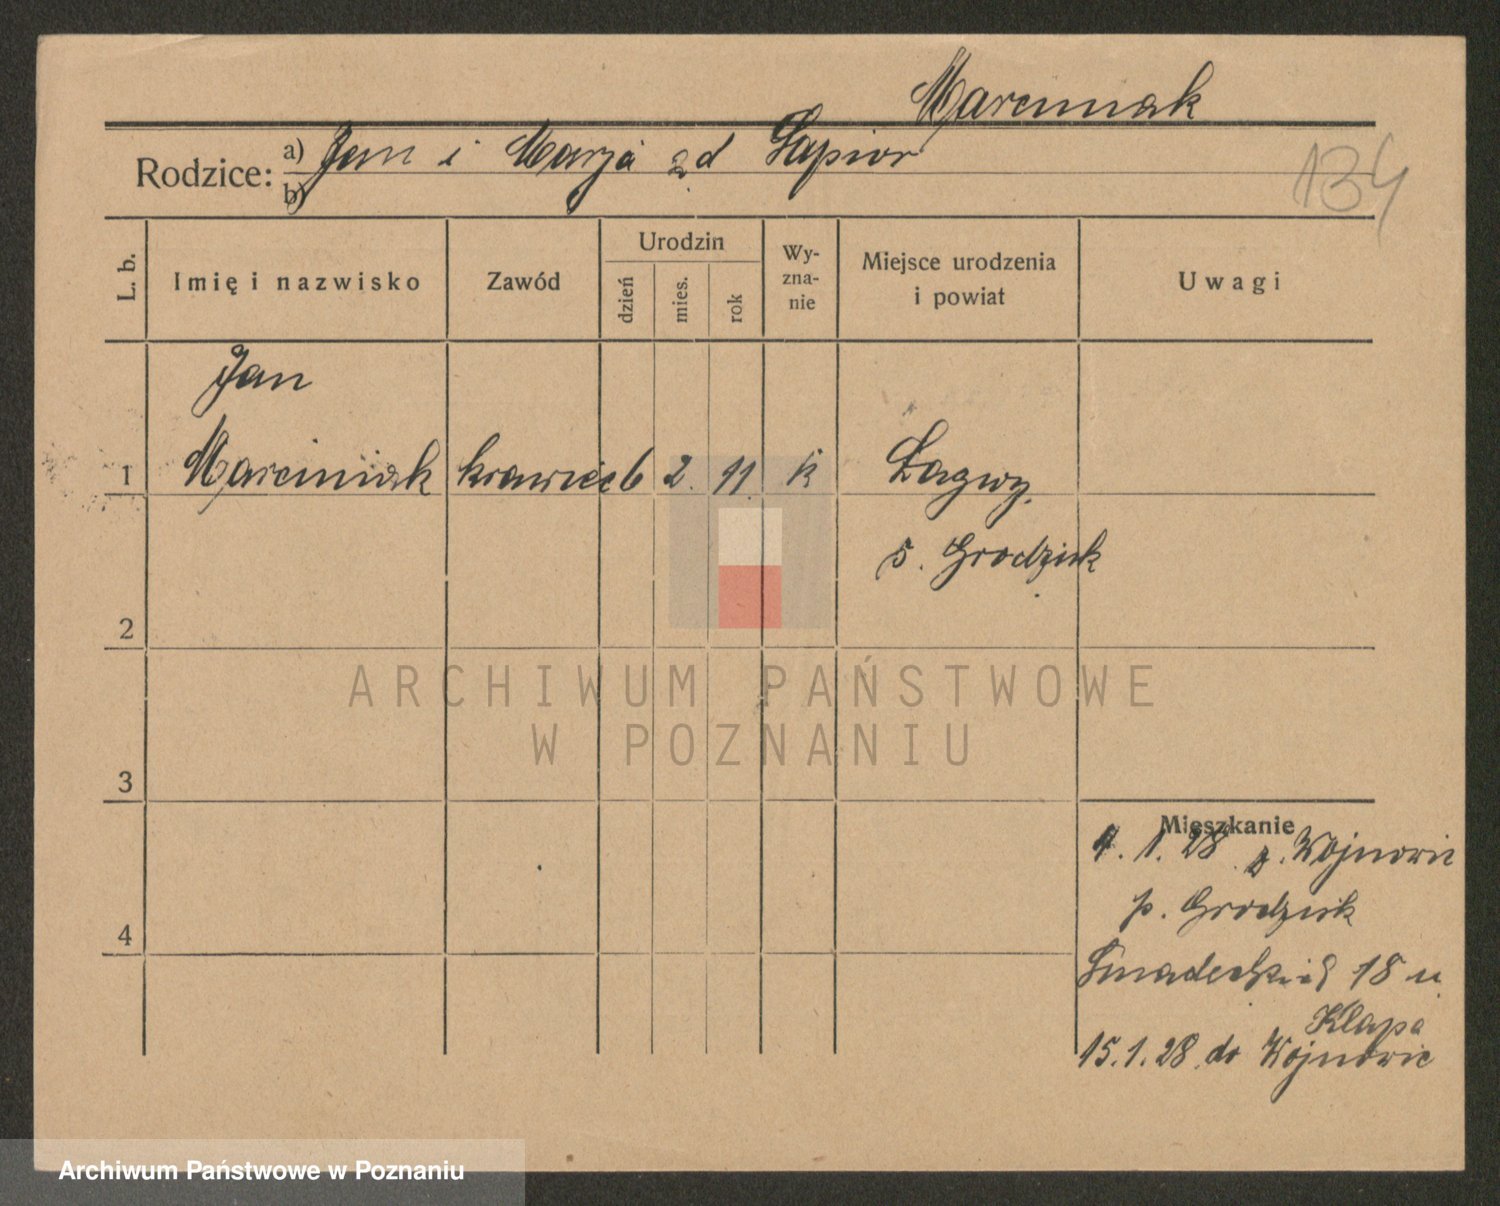 Marciniak
Rodzice: a) Jan i Marja zd Łapior
b)
134
L. b. Imię i nazwisko Zawód Urodzin dzień mies. rok Wy-zna-nie Miejsce urodzenia i powiat Uwagi
Jan
1 Marciniak krawiec 6 2. 11. k Łagwy
p. Grodzisk
2
3
Mieszkanie
4. 1. 28 z. Wojnowic
p. Grodzisk
4
Śniadeckich 18 u
Klapa
15.1.28 do Wojnowic
ARCHIWUM PAŃSTWOWE
W POZNANIU
Archiwum Państwowe w Poznaniu